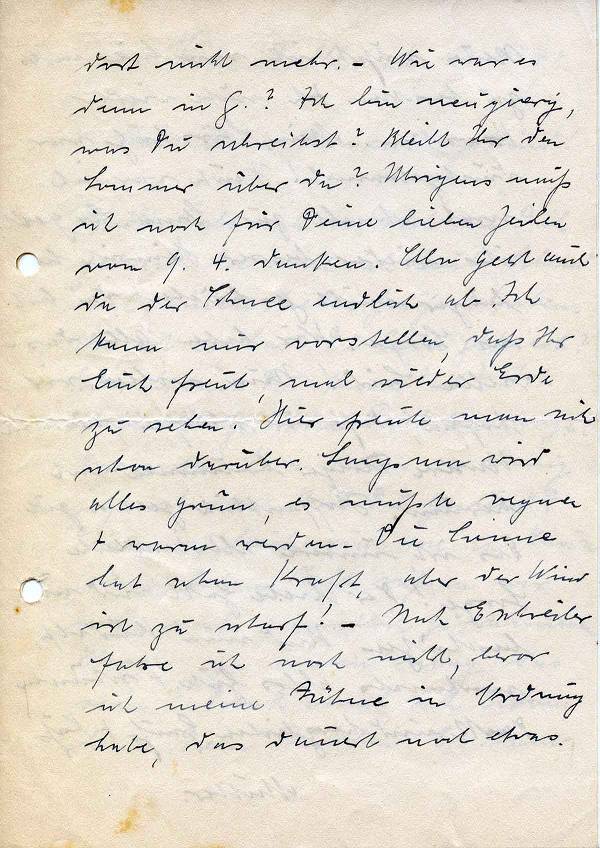 dort nicht mehr. – Wie war es
denn in G.? Ich bin neugierig,
was Du schreibst? Bleibt Ihr den
Sommer über da? Übrigens muß
ich noch für Deine lieben Zeilen
vom 9. 4. danken. Also geht auch
da der Schnee endlich ab. Ich
kann mir vorstellen, daß Ihr
Euch freut, mal wieder Erde
zu sehen! Hier freute man sich
schon darüber. Langsam wird
alles grün, es müßte regnen
+ warm werden – Die Sonne
hat schon Kraft, aber der Wind
ist zu scharf! – Nach
fahre ich noch nicht, bevor
ich meine Zähne in Ordnung
habe, das dauert noch etwas.